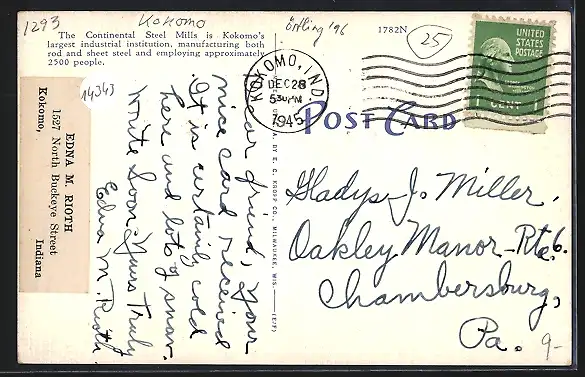 1293
Kokomo
Örtling '96
1782N
25
The Continental Steel Mills is Kokomo's
largest industrial institution, manufacturing both
rod and sheet steel and employing approximately
2500 people.
14343
EDNA M. RIOTH
1527 North Buckeye Street
Kokomo, Indiana
Dear friend, Your
nice card received
It is certainly cold
here and lots of snow.
Write Soon. Yours Truly
Edna M. Rioth
KOKOMO, IND.
DEC 28
530PM
1945
UNITED
STATES
POSTAGE
1 CENT
POST CARD
BY E. C. KROPP CO., MILWAUKEE, WIS.
Gladys J. Miller.
Oakley Manor - Rte 6.
Chambersburg,
Pa.
9-